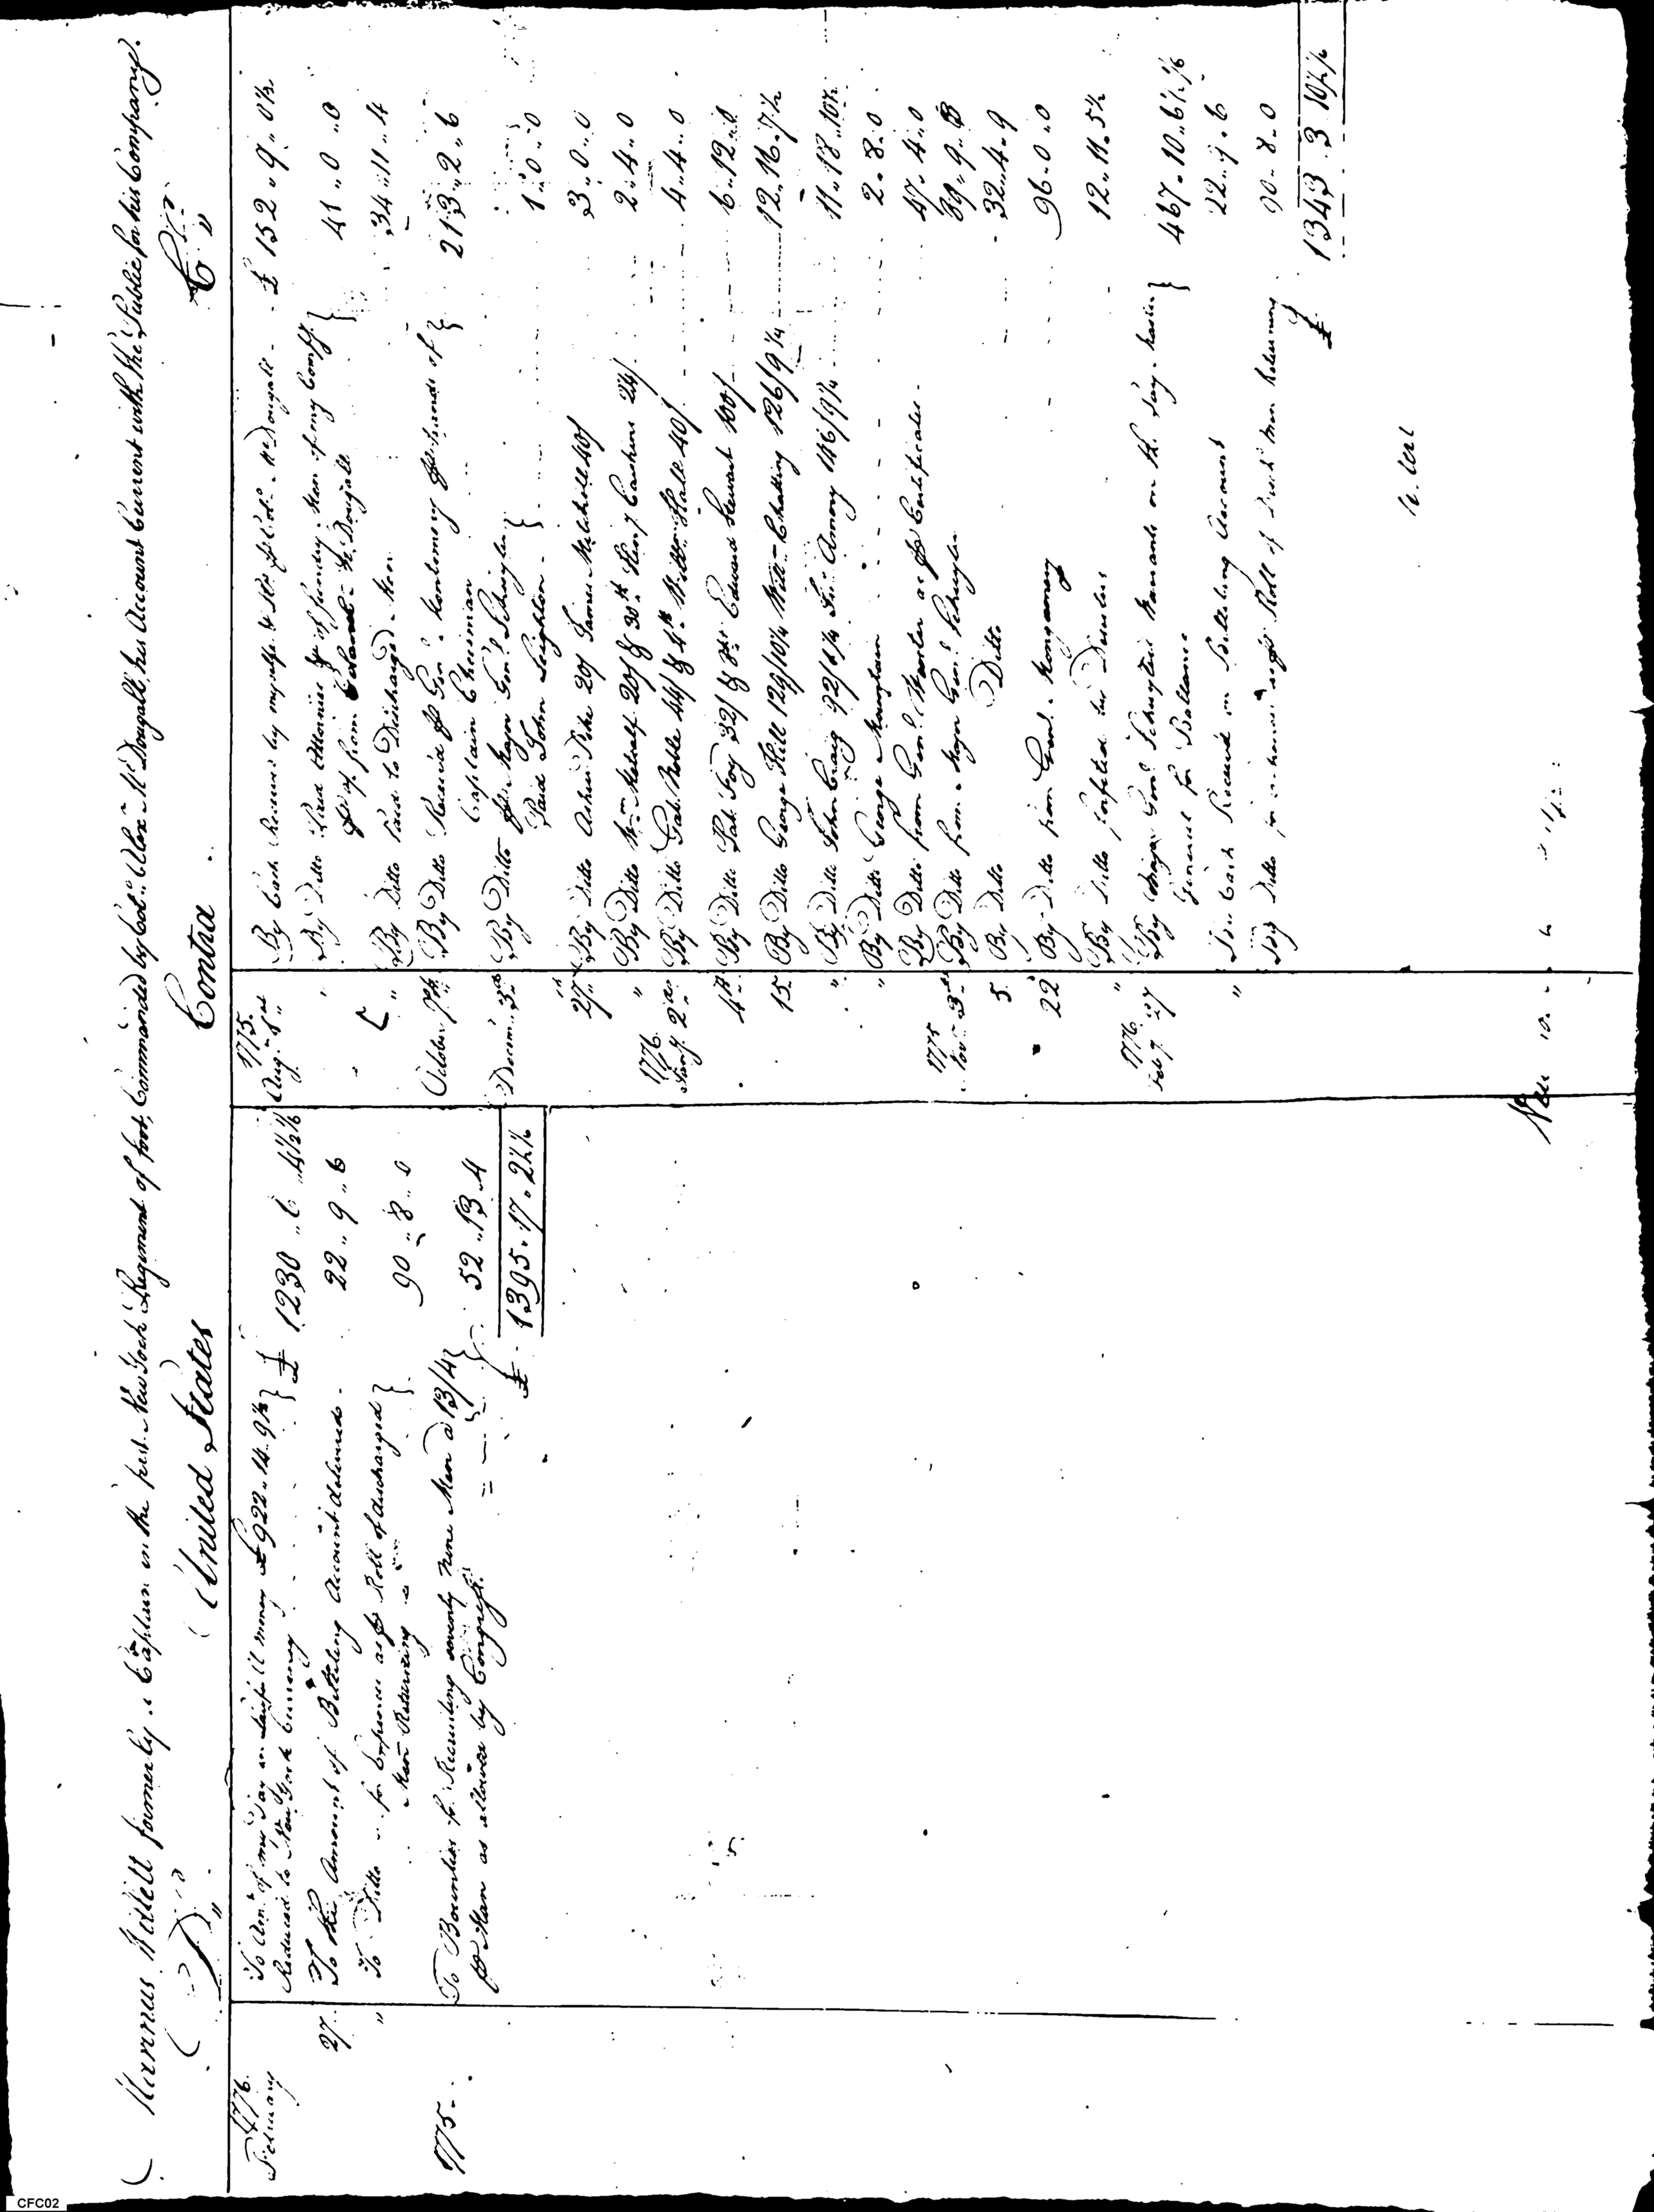 Marinus Willett formerly a Captain in the first New York Regiment of foot, Commanded by Col.. Alexr. McDougall, his Account Current with the Public for his Company.
Dr United States
Contra Cr
1776
February To Amt. of my Pay in Lawfull money £922..14..9½ }
Reduced to New York Currency } £ 1230..6..4½ 1/6
27 To the Amount of Billeting Account delivered - 22..9..6
" To Ditto for Expences as pr Roll of discharged }
Men Returning } 90..8..0
1775 To Bounties for Recruiting seventy nine Men a 13/4 }
pr Man as allowed by Congress. } 52..13..4
£ 1395..17..2½ 1/6
1775.
Aug. By Cash Received by myself of Col. McDougall - £ 152..9..0½
" By Ditto Paid Attornies of sundry Men of my Compy. }
from McDougall } 41..0..0
" By Ditto Paid to Discharged Men 34..11..4
October By Ditto Receiv'd pr Genl. Montgomery pr hands of }
Captain Cheesman } 213..2..6
Decem. 3d By Ditto pr Major Genl. Schuyler }
Paid John Leighton - } 1..0..0
27 By Ditto Asher Pike 20/ James Mitchell 40/ 3..0..0
" By Ditto Wm. Metcalf 20/ & 30th. Henry Cashine 24/ 2..4..0
1776
Jany. 2d By Ditto Gab. Noble 44/ & 4th. Willm. Hall 40/ 4..4..0
4th By Ditto Pat. Foy 32/ & Edward Stewart 100/ 6..12..0
15 By Ditto George Hill 129/10¼ Will. Chatting 126/9¼ 12..16..7½
" By Ditto John Craig 92/1¼ Jno. Amory 146/9¼ 11..18..10½
" By Ditto George Maughan 2..8..0
1775
Nov. 3d By Ditto from Genl. Wooster as pr Certificates - 47..4..0
By Ditto from Major Genl. Schuyler 39..9..
5 By Ditto Ditto 32..4..9
22 By Ditto from Genl. Mongomery 96..0..0
" By Ditto forfeited by Deserters 12..11..5½
1776
Feb. 27 By Major Genl. Schuylers Warrants on the Pay-Master }
General for Ballance } 467..10..6½ 1/6
" By Cash Received on Billeting Account 22..9..6
By Ditto for expences as pr Roll of Disch'd Men Returning 90..8..0
£ 1343..3..10½ 1/6